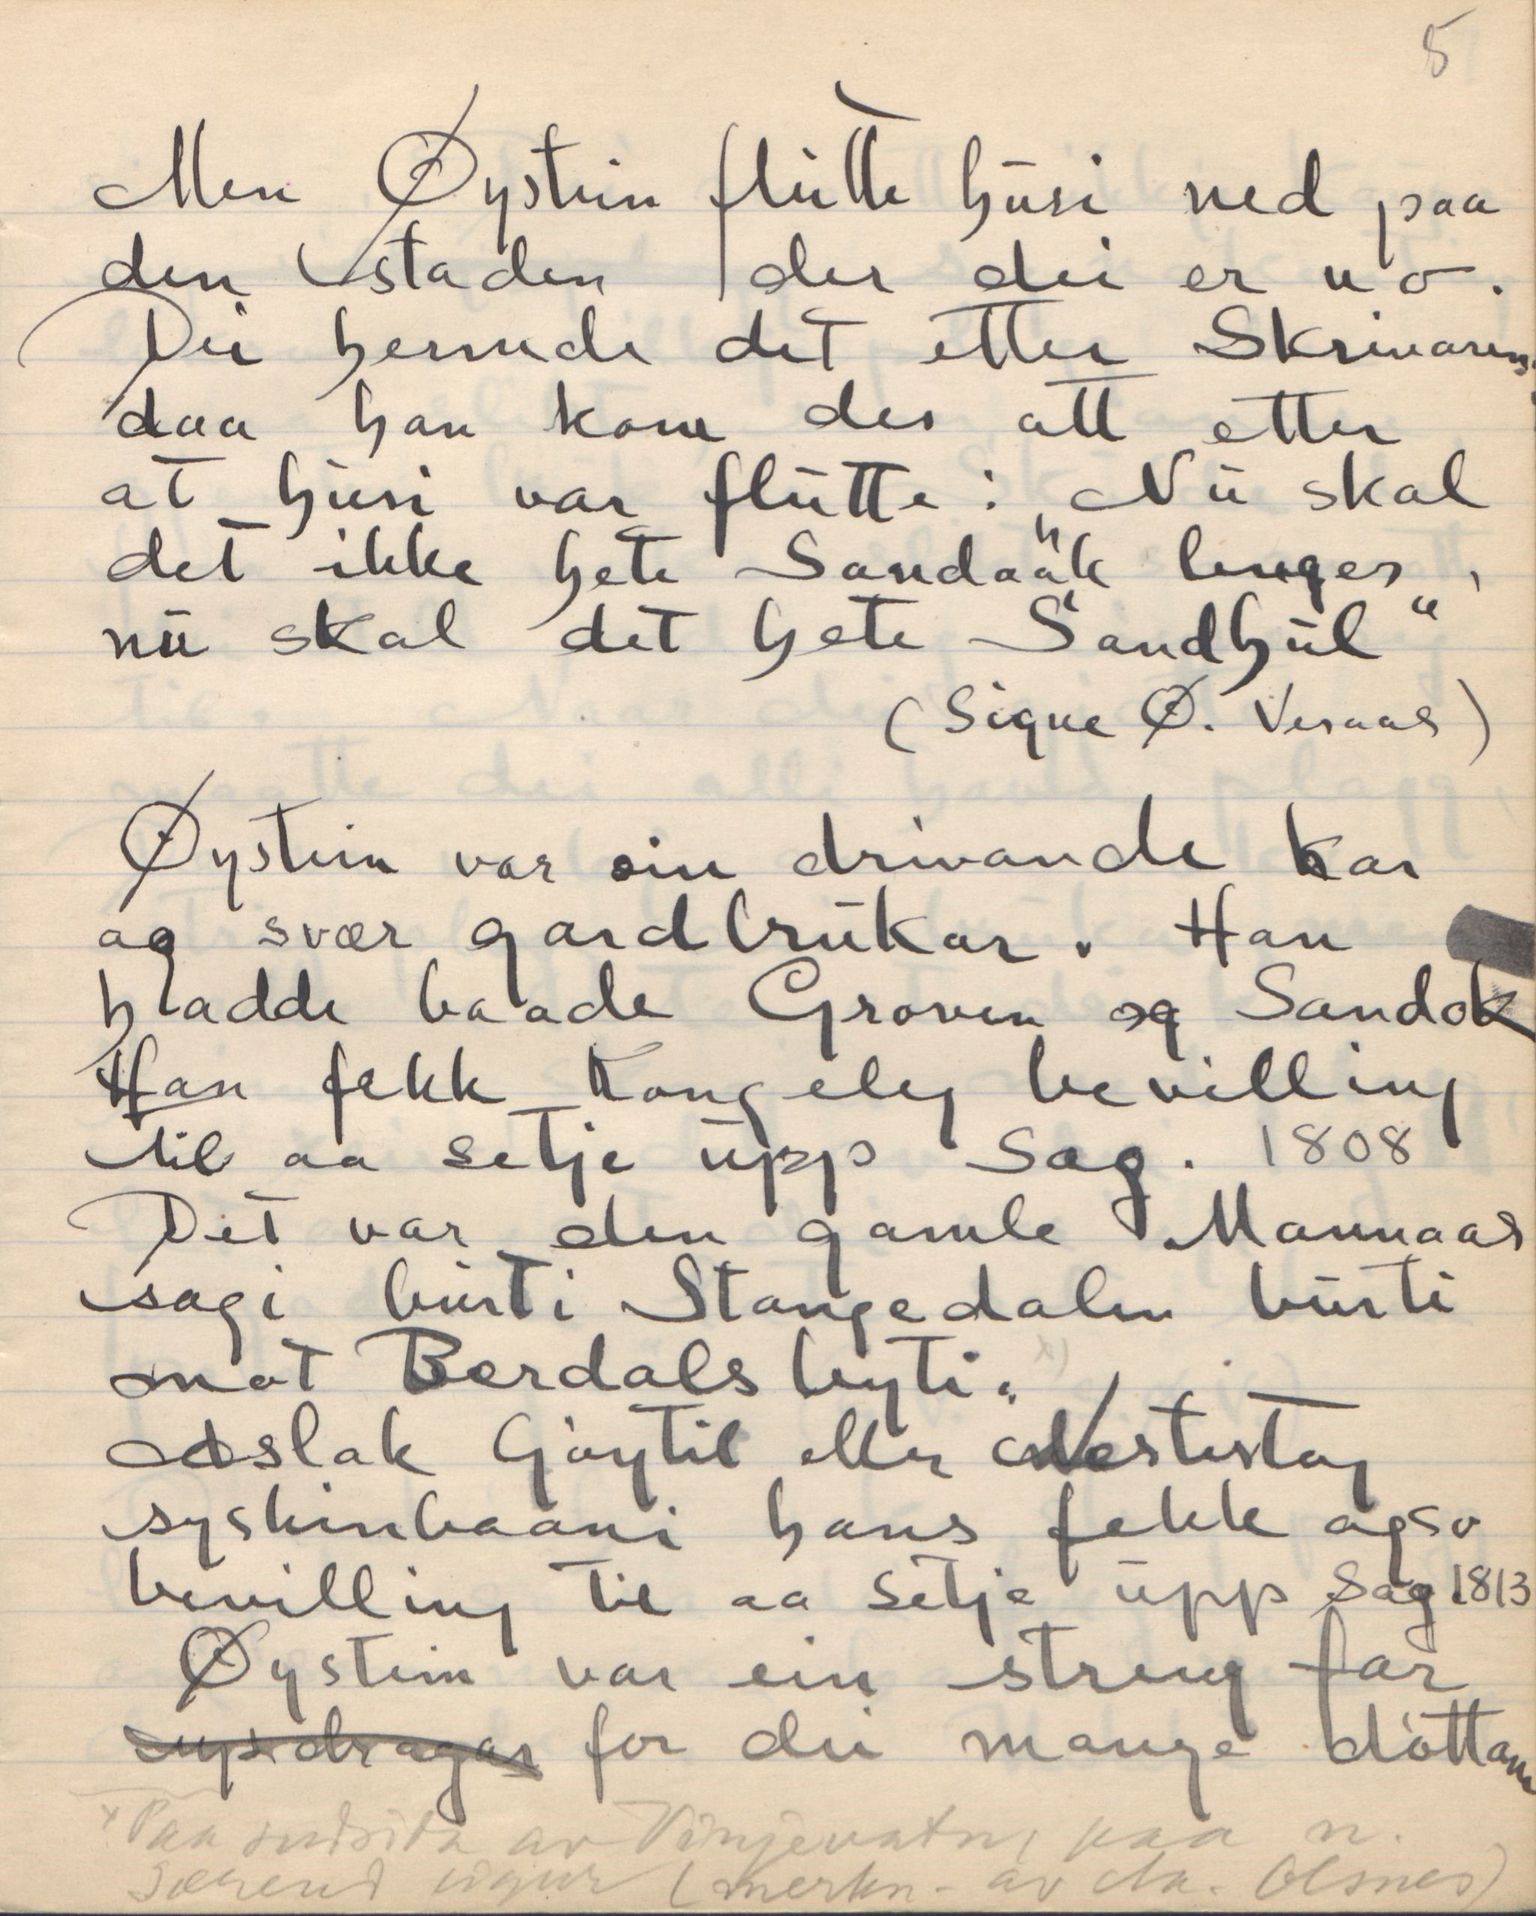 5
Men Øystein flutte husi ned paa
den staden der dei er no.
Dei hermde det etter Skrivaren,
daa han kom der att etter
at husi var flutte: „Nu skal
det ikke hete Sandaak lenger,
nu skal det hete Sandhul"
(Signe Ø. Vesaas)
Øystein var ein drivande kar
og svær gardbrukar. Han
hadde baade Groven og Sandok
Han fekk Kongeleg bevilling
til aa setje upp Sag. 1808
Det var den gamle Mannaas
sagi burti Stangedalen burti
mot Berdalsbyti. x)
Aslak Gøytil eller Nestestog
syskinbaani hans fekk ogso
bevilling til aa setje upp Sag 1813
Øystein var ein streng far
for dei mange døttane
x Paa sudsida av Vinjevatn, paa n.
(merkn. av Olsnes)